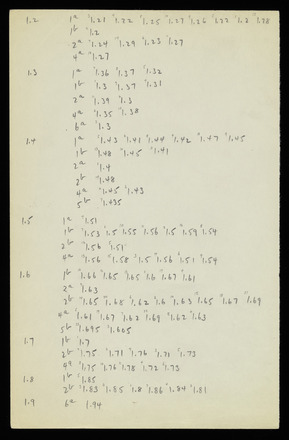 1.2 1a "1.21 "1.22 "1.25 "1.27 "1.26 "1.22 "1.2 "1.28
1b "1.2
2a "1.24 "1.29 "1.23 "1.27
4a "1.27
1.3 1a "1.36 "1.37 "1.32
1b "1.3 "1.37 "1.31
2a "1.39 "1.3
4a "1.35 "1.38
6a "1.3
1.4 1a "1.43 "1.41 "1.44 "1.42 "1.47 "1.45
1b "1.48 "1.45 "1.41
2a "1.4
2b "1.48
4a "1.45 "1.43
5b "1.435
1.5 1a "1.51
1b "1.53 "1.5 "1.55 "1.56 "1.5 "1.59 "1.54
2b "1.56 "1.51
4a "1.56 "1.58 "1.5 "1.56 "1.51 "1.54
1.6 1b "1.66 "1.65 "1.65 "1.6 "1.67 "1.61
2a "1.63
2b "1.65 "1.68 "1.62 "1.6 "1.63 "1.65 "1.67 "1.69
4a "1.61 "1.67 "1.62 "1.69 "1.62 "1.63
5b "1.695 "1.605
1.7 1b "1.7
2b "1.75 "1.71 "1.76 "1.71 "1.73
4a "1.75 "1.76 "1.78 "1.72 "1.73
1.8 1b "1.85
2b "1.83 "1.85 "1.8 "1.86 "1.84 "1.81
1.9 6a 1.94